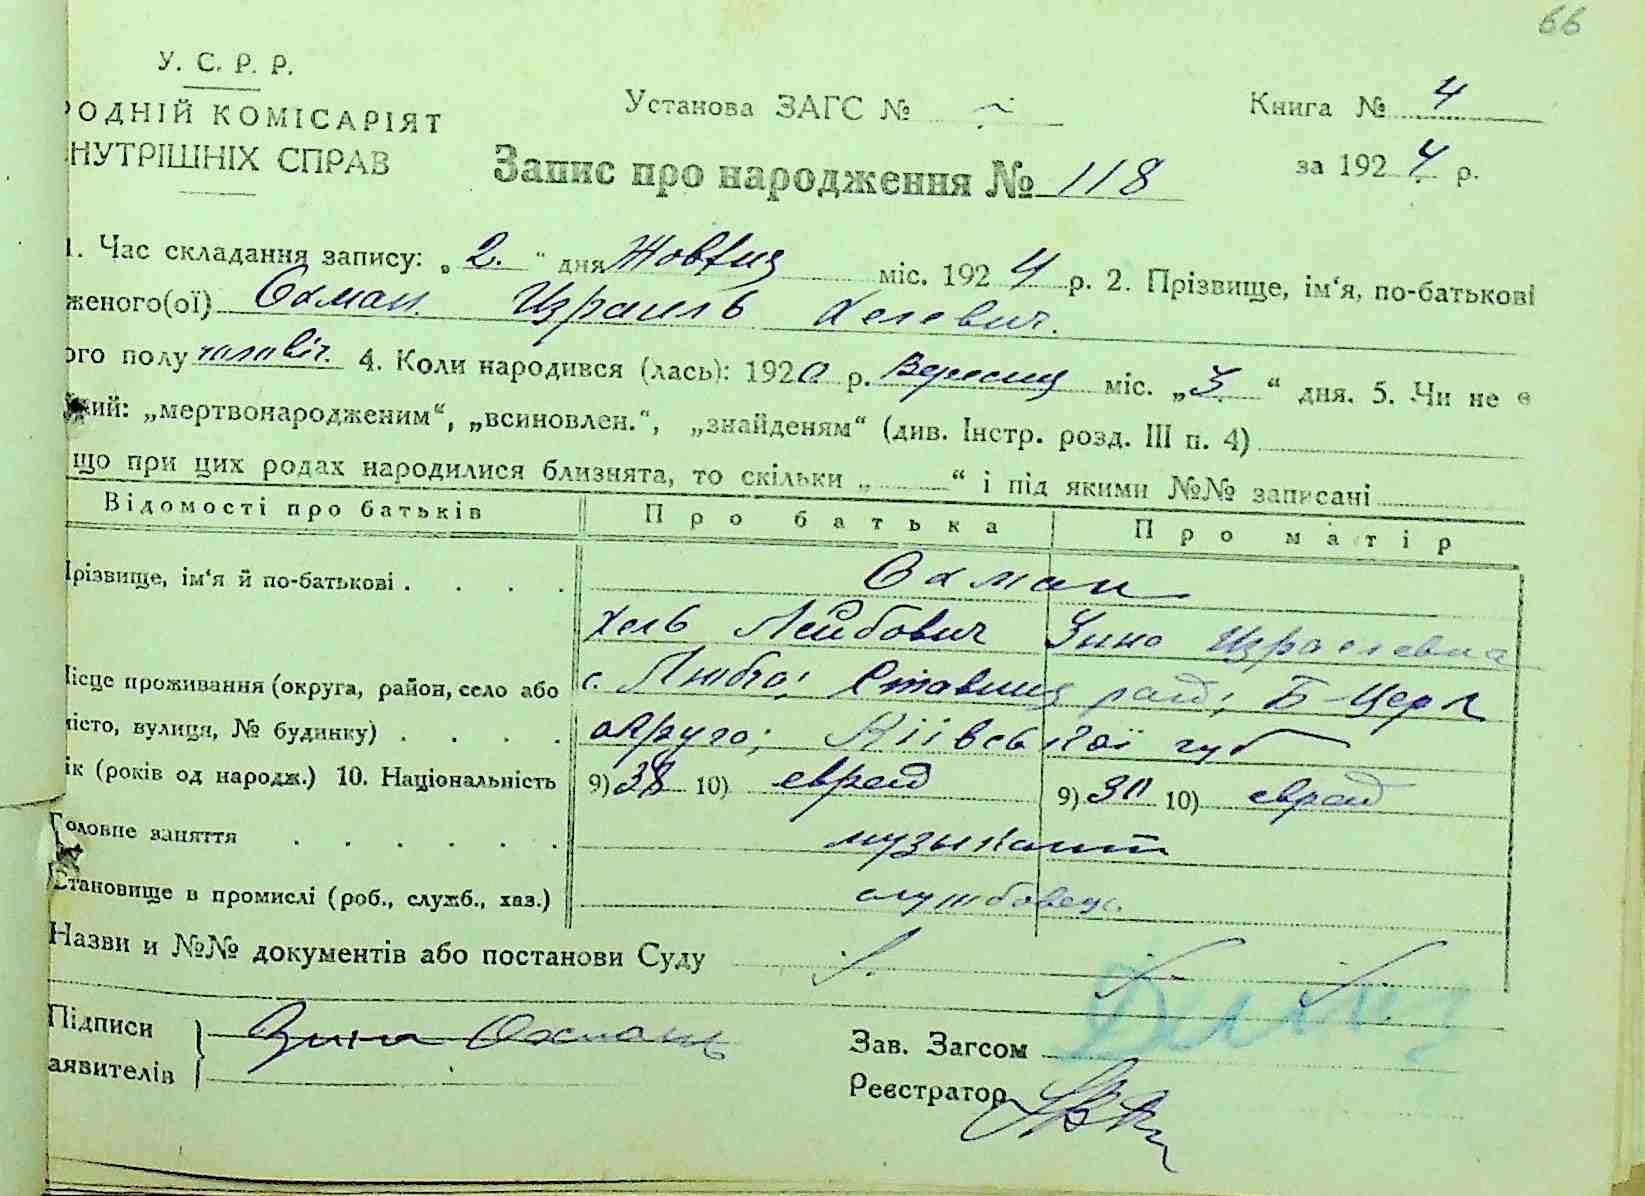 66
У. С. Р. Р.
РОДНІЙ КОМІСАРІЯТ
НУТРІШНІХ СПРАВ
Установа ЗАГС №
Книга № 4
за 1924 р.
Запис про народження № 118
1. Час складання запису: „2.“ дня Жовтня міс. 1924 р. 2. Прізвище, ім‘я, по-батькові
женого(ої) Охман. Израиль Хелевич.
ого полу чоловіч. 4. Коли народився (лась): 1920 р. Вересня міс. „3.“ дня. 5. Чи не є
кий: „мертвонародженим“, „всиновлен.“, „знайденям“ (див. Інстр. розд. III п. 4)
що при цих родах народилися близнята, то скільки „ “ і під якими №№ записані
Відомості про батьків Про батька Про матір
Прізвище, ім‘я й по-батькові . . . . Охман
Хель Лейбович Зина Израелевна
Місце проживання (округа, район, село або с. Люба; Ставищ райд; Б-Церк
місто, вулиця, № будинку) . . . . округа; Київської губ
ік (років од народж.) 10. Національність 9) 38 10) еврей 9) 30 10) еврей
Головне заняття . . . . . . музыкант
Становище в промислі (роб., служб., хаз.) службовец.
Назви и №№ документів або постанови Суду
Підписи
аявителів
Зина Охмань
Зав. Загсом
Реєстратор